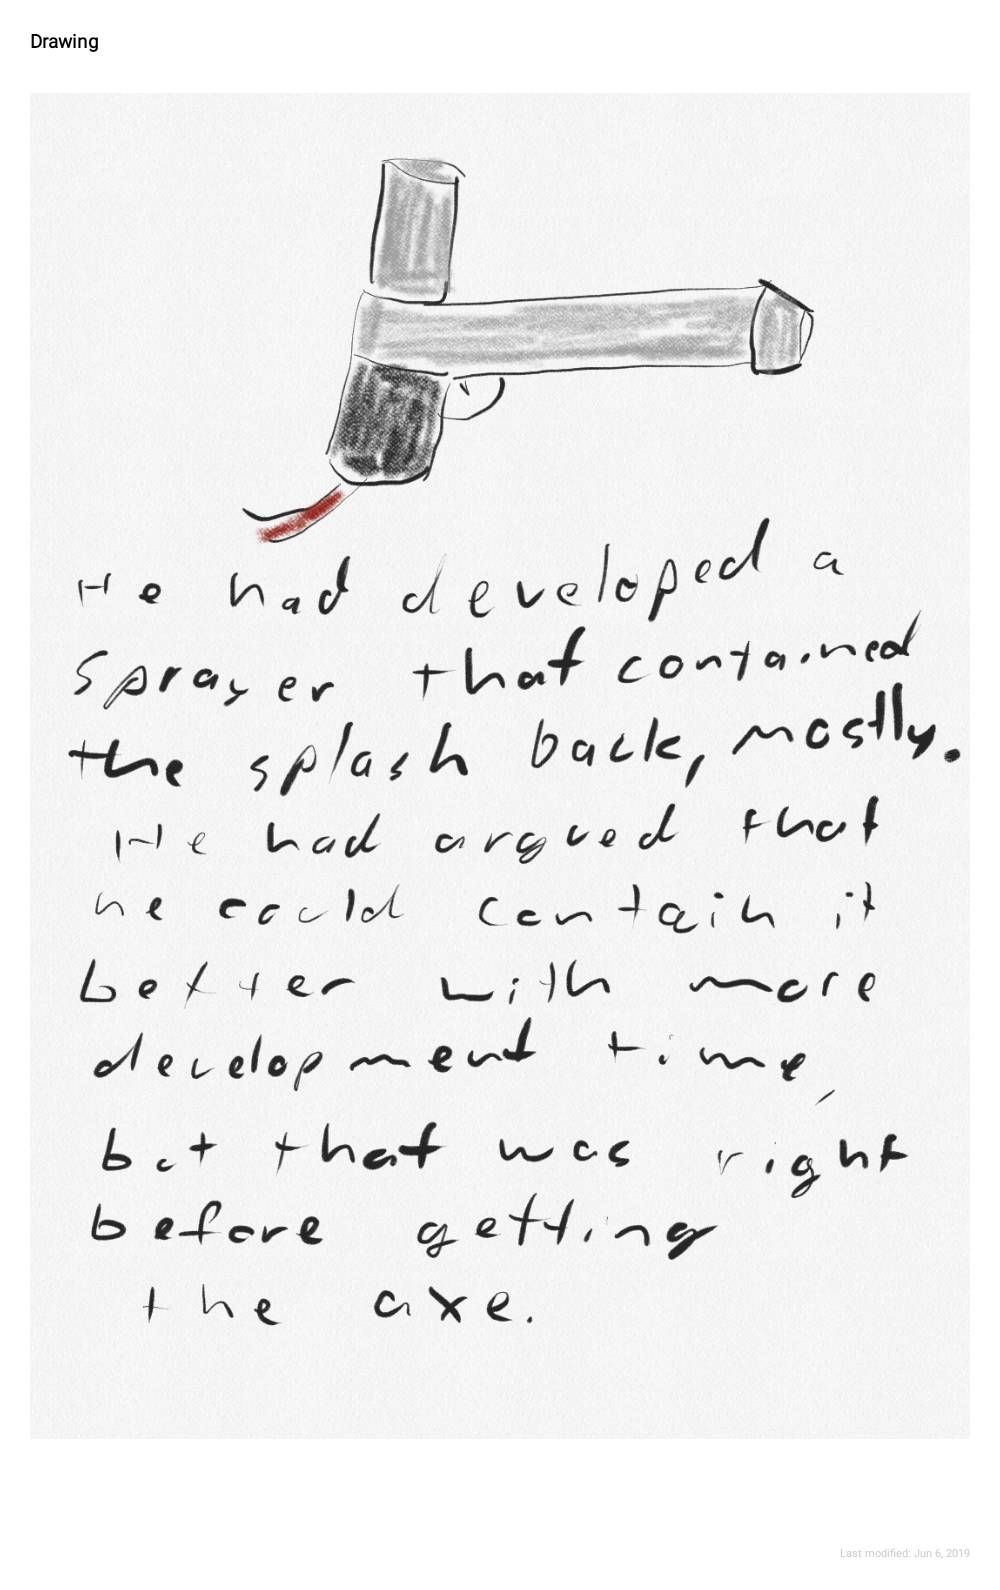 Drawing
He had developed a
sprayer that contained
the splash back, mostly.
He had argued that
he could contain it
better with more
development time,
but that was right
before getting
the axe.
Last modified: Jun 6, 2019